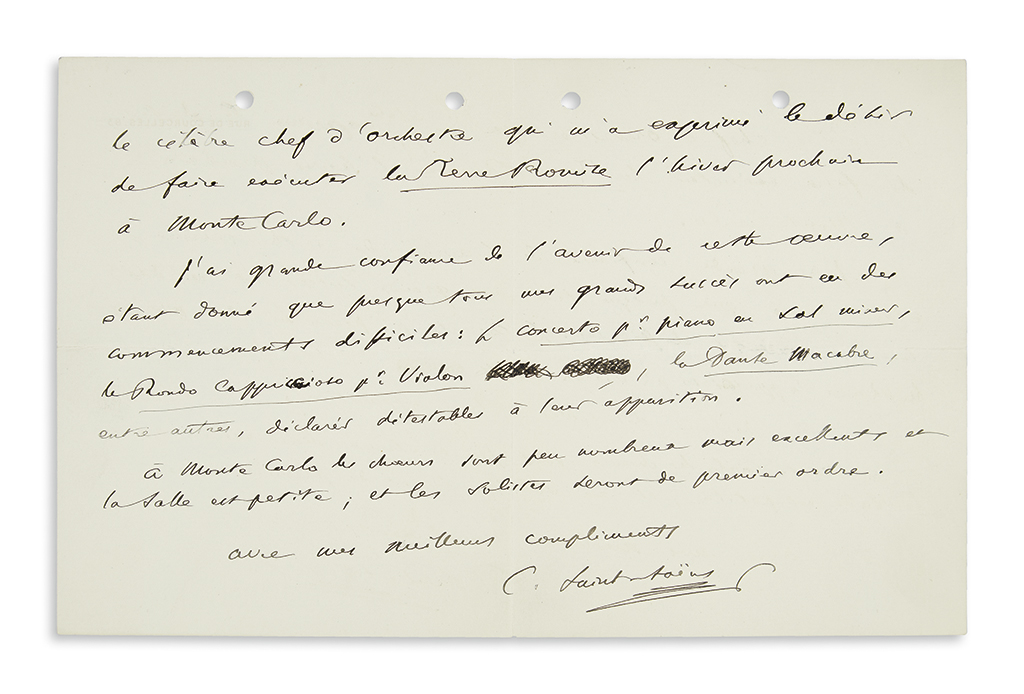 le célèbre chef d'orchestre qui m'a exprimé le désir
de faire exécuter la Terre Promise l'hiver prochain
à Monte Carlo.
J'ai grande confiance de l'avenir de cette œuvre,
étant donné que presque tous mes grands succès ont eu des
commencements difficiles : le concerto pr. piano en sol mineur,
le Rondo Cappricioso pr. Violon, la Danse Macabre,
entre autres, déclarés détestables à leur apparition.
à Monte Carlo les chœurs sont peu nombreux mais excellents et
la salle est petite ; et les solistes seront de premier ordre.
avec mes meilleurs compliments
C. Saint-Saëns